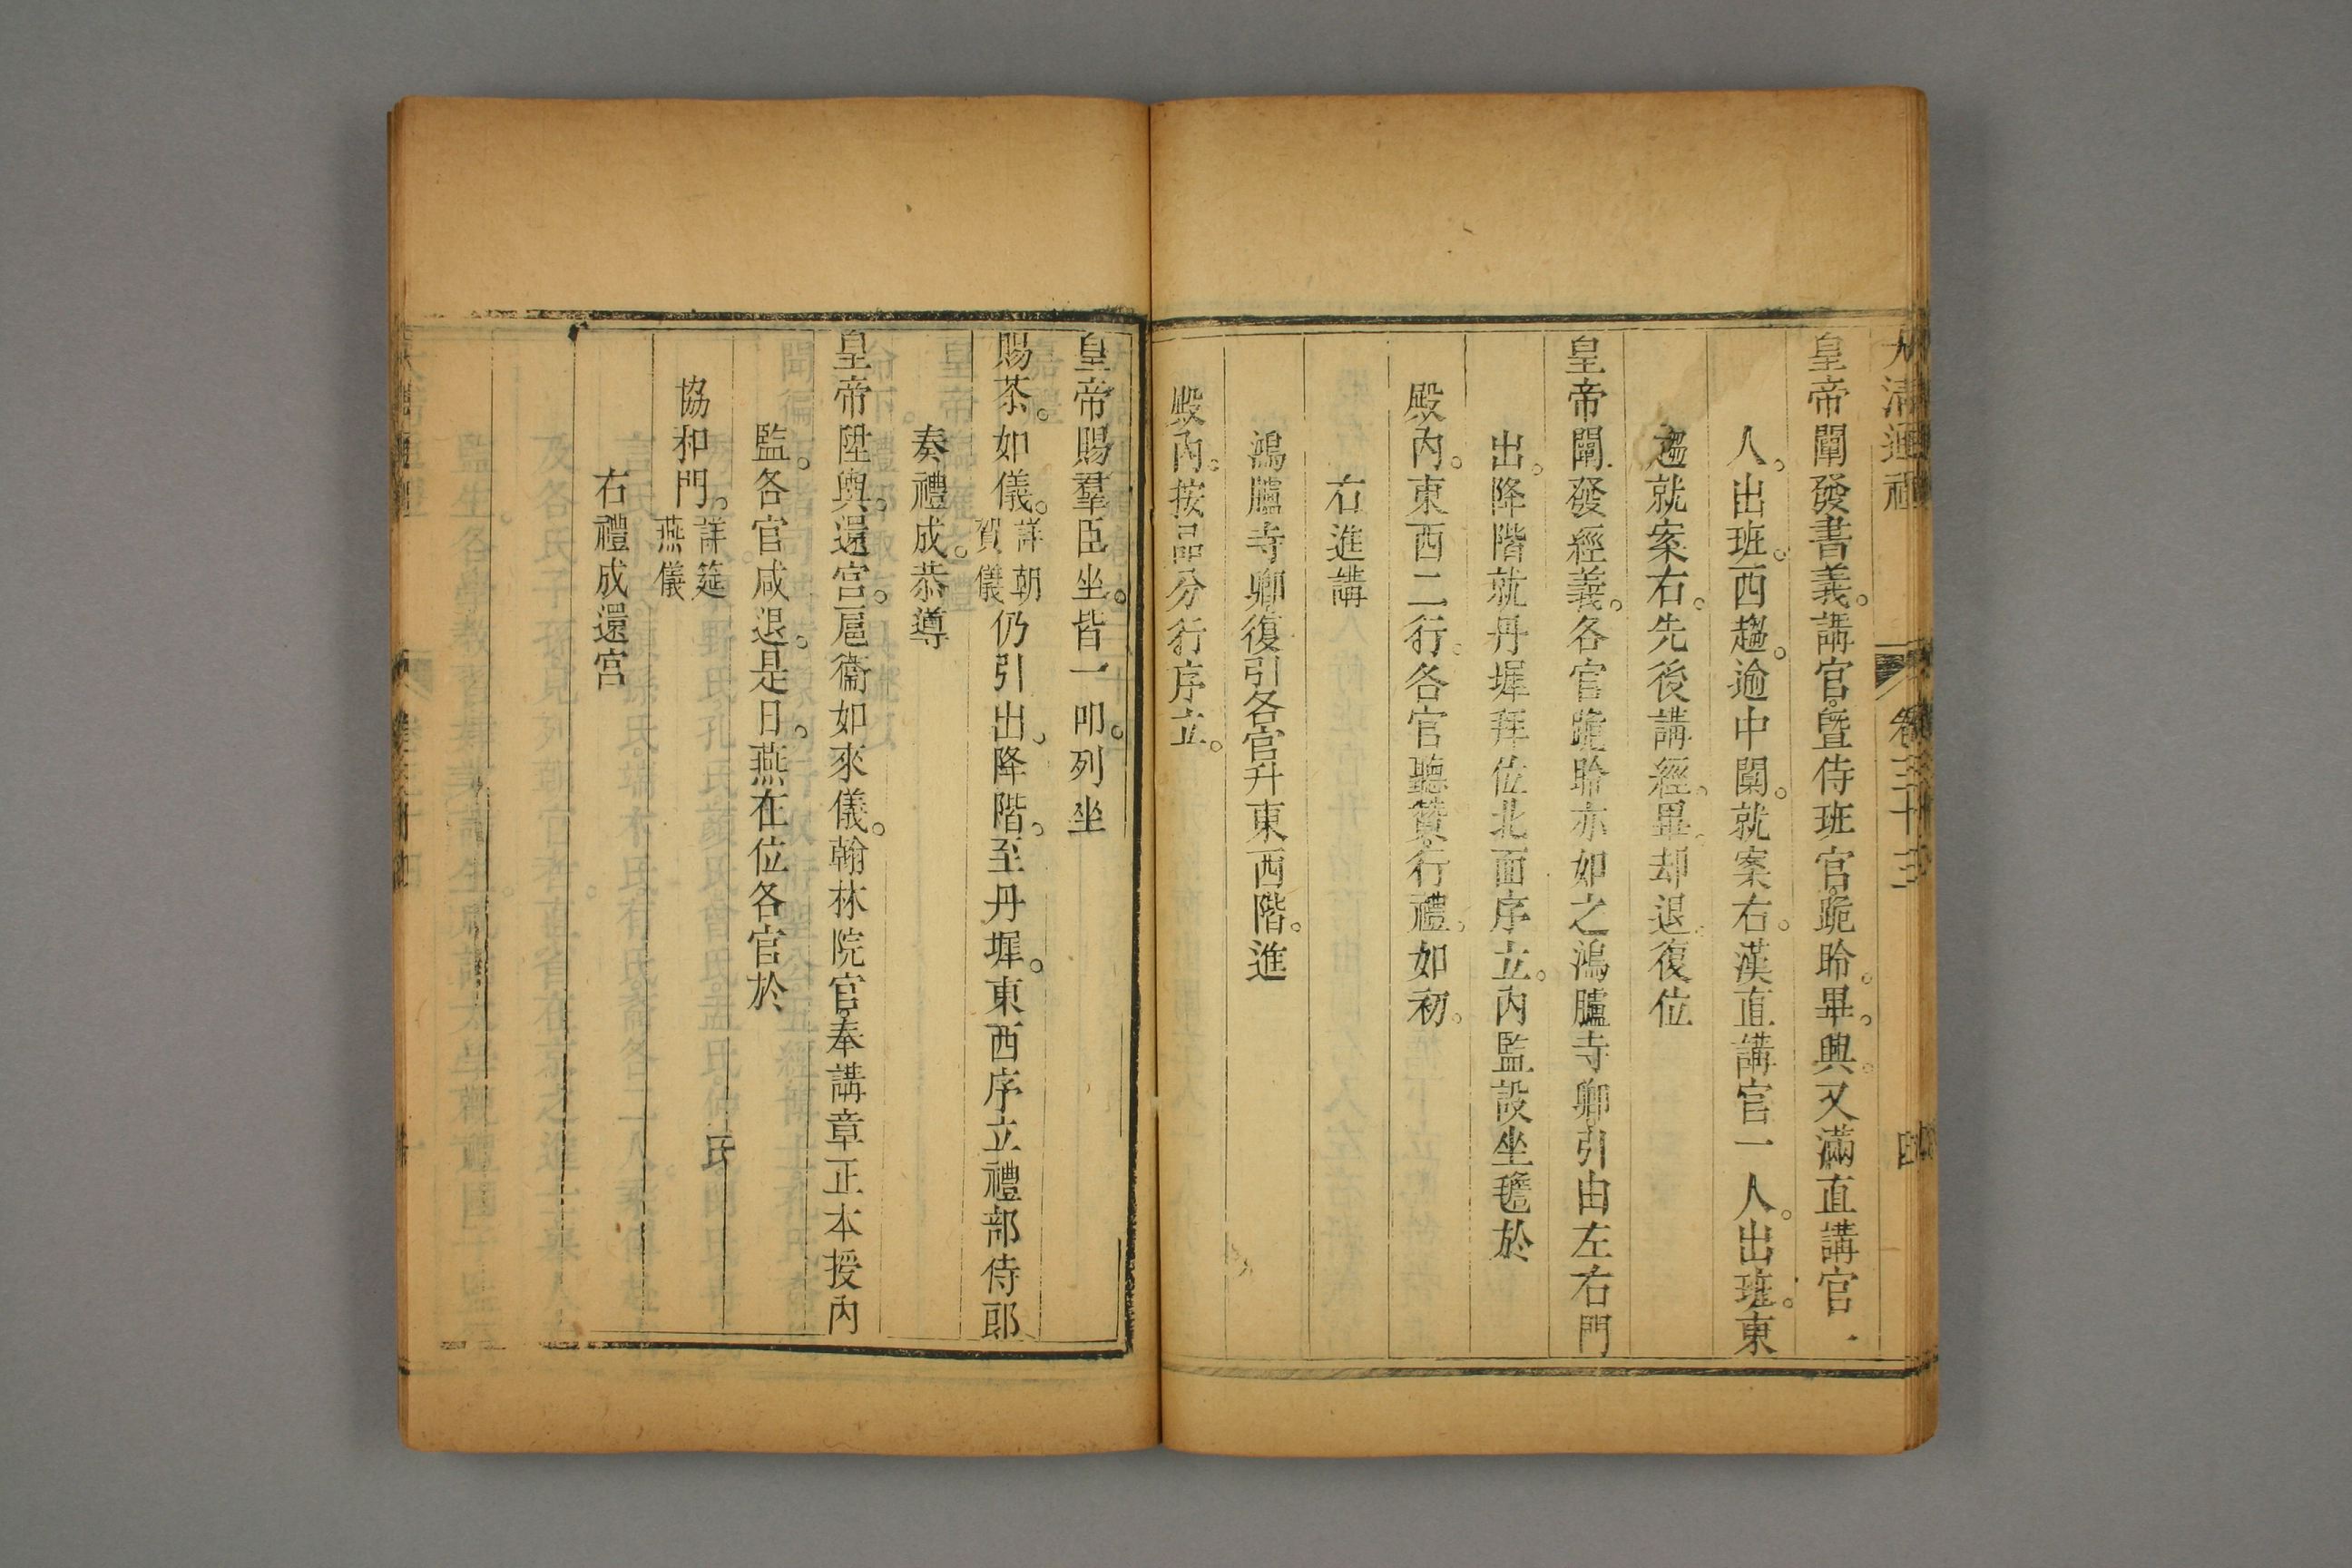 大清通禮 卷三十三 四
皇帝闡發書義。講官暨侍班官跪聆。畢。興。又滿直講官一
人。出班。西趨。逾中闑。就案右。漢直講官一人。出班。東
趨就案右。先後講經。畢。却退。復位
皇帝闡發經義。各官跪聆亦如之鴻臚寺卿引由左右門
出。降階就丹墀拜位北面序立。內監設坐氊於
殿內。東西二行。各官聽贊行禮。如初。
右進講
鴻臚寺卿復引各官升東西階。進
殿內。按品分行序立。
皇帝賜羣臣坐。皆一叩。列坐
賜茶。如儀。詳朝賀儀仍引出。降階。至丹墀。東西序立禮部侍郎
奏禮成。恭導
皇帝陞輿。還宮。扈衞如來儀。翰林院官奉講章正本授內
監。各官咸退。是日。燕在位各官於
協和門。詳筵燕儀
右禮成還宮